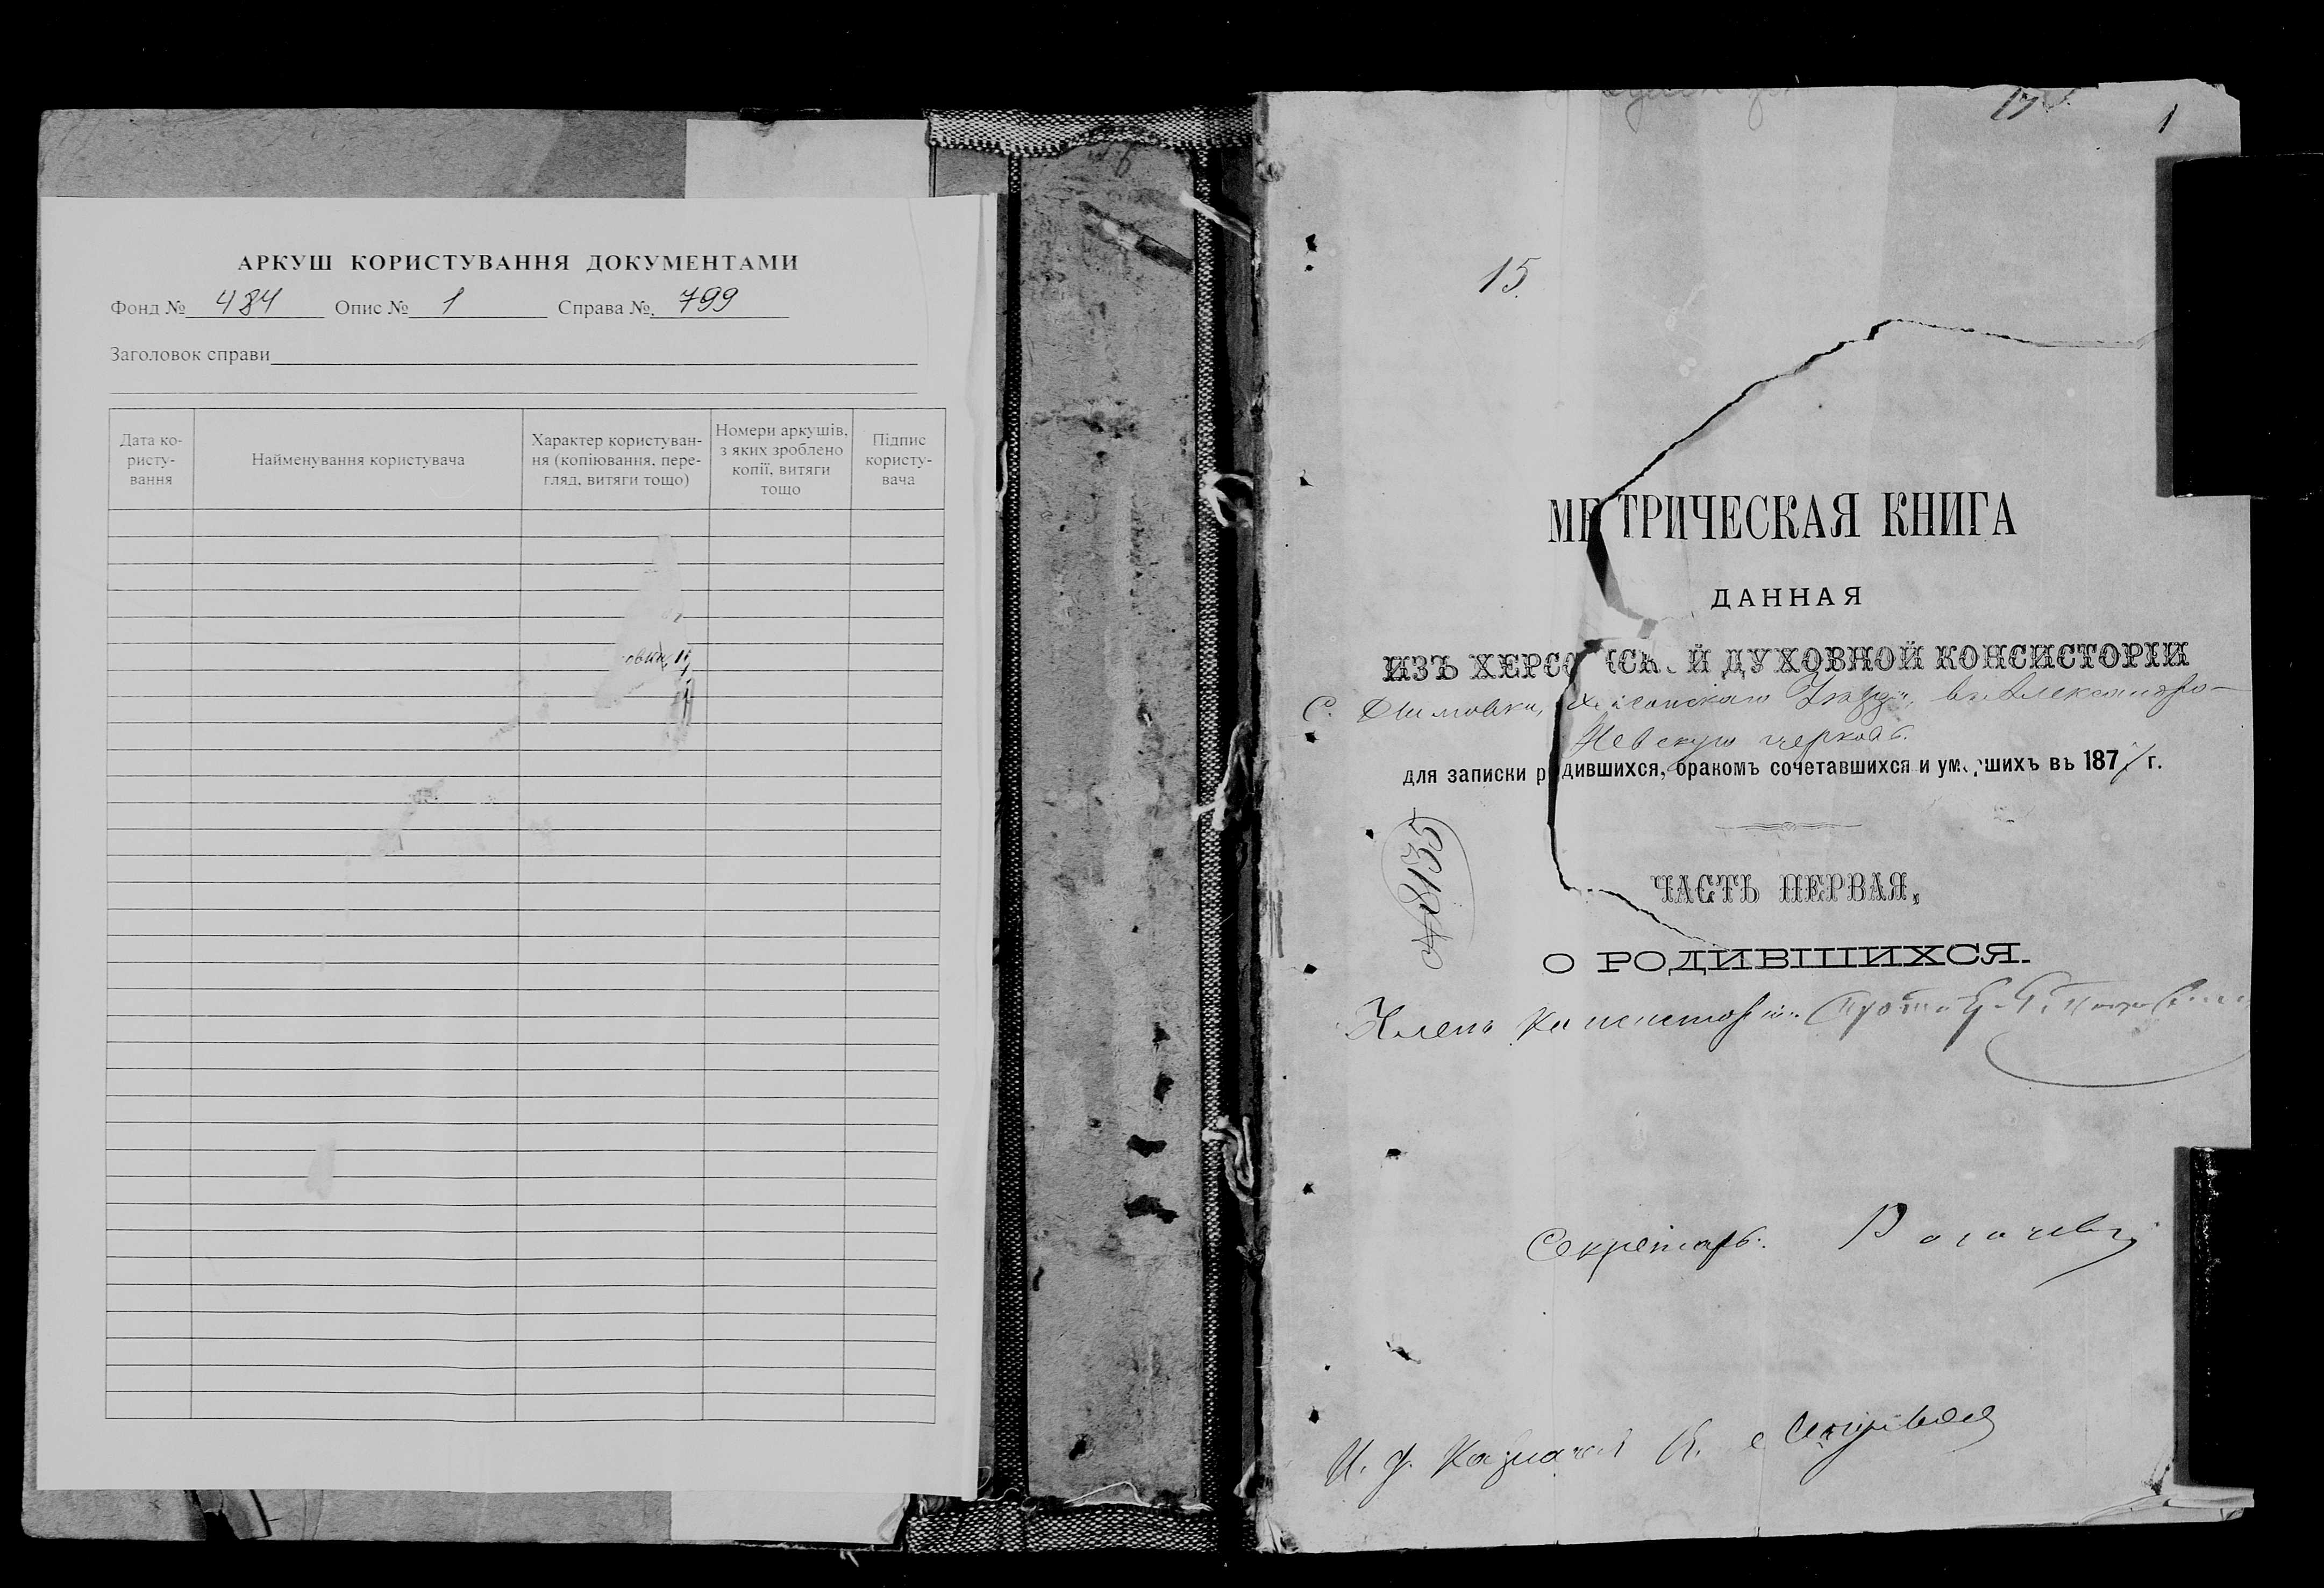 АРКУШ КОРИСТУВАННЯ ДОКУМЕНТАМИ
Фонд № 484 Опис № 1 Справа № 799
Заголовок справи
Дата ко-
ристу-
вання
Найменування користувача
Характер користуван-
ня (копіювання, пере-
гляд, витяги тощо)
Номери аркушів,
з яких зроблено
копії, витяги
тощо
Підпис
користу-
вача
1
15.
МЕТРИЧЕСКАЯ КНИГА
ДАННАЯ
ИЗЪ ХЕРСОНСКОЙ ДУХОВНОЙ КОНСИСТОРІИ
С. Херсонскаго Уѣзда, въ Александро-
Невскую церковь.
для записки родившихся, бракомъ сочетавшихся и умершихъ въ 1877 г.
№ 8135
ЧАСТЬ ПЕРВАЯ,
О РОДИВШИХСЯ.
Членъ Консисторіи
Секретарь
И. д. Казначея